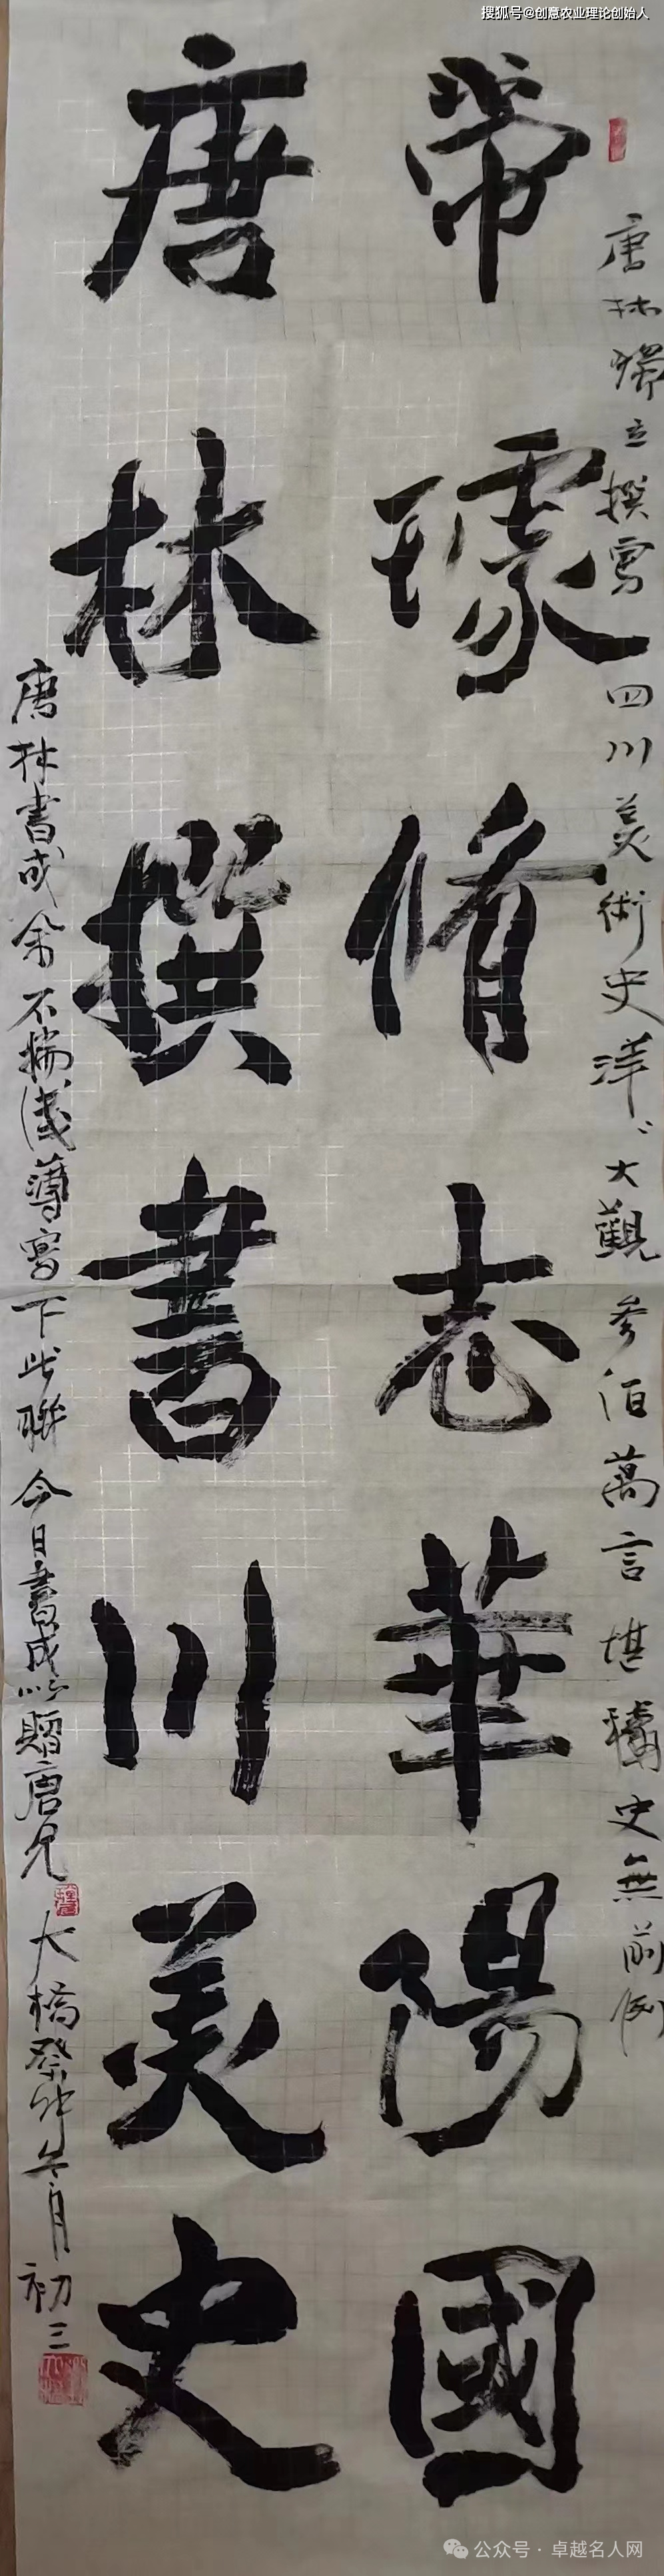 搜狐号@创意农业理论创始人
唐林獨立撰寫四川美術史洋〻大觀叁佰萬言堪稱史無前例
常璩脩志華陽國
唐林撰書川美史
唐林書成余不揣淺薄寫下此聯今日書成以贈唐兄
大橋癸卯年六月初三
公众号·卓越名人网